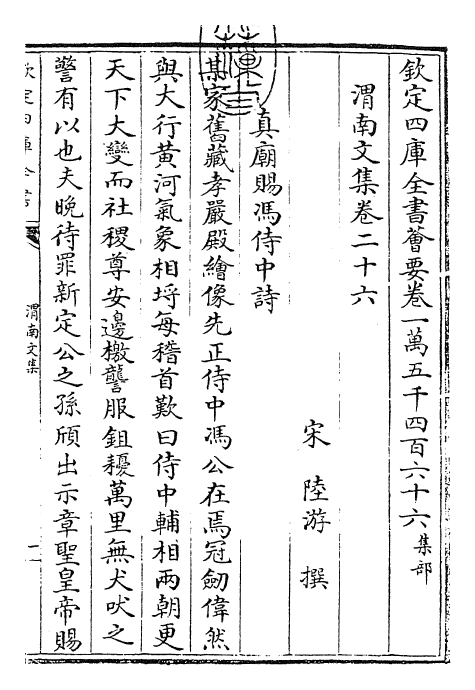 欽定四庫全書薈要卷一萬五千四百六十六集部
渭南文集卷二十六
宋陸游撰
真廟賜馮侍中詩
某家舊藏孝嚴殿繪像先正侍中馮公在焉冠劒偉然
與大行黃河氣象相埒每稽首歎曰侍中輔相兩朝更
天下大變而社稷尊安邊檄讋服鉏耰萬里無犬吠之
警有以也夫晚待罪新定公之孫頎出示章聖皇帝賜
欽定四庫全書
渭南文集
一